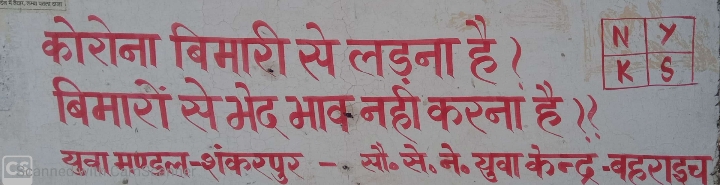 कोरोना बिमारी से लड़ना है?
बिमारों से भेद भाव नहीं करना है??
युवा मण्डल-शंकरपुर - सौ० से० ने० युवा केन्द्र-बहराइच
N Y
K S
CS Scanned with CamScanner